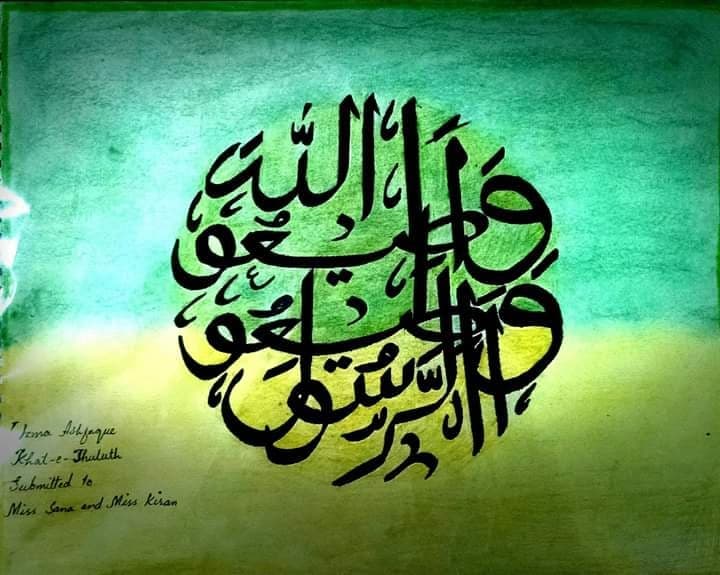 وَاطيعُوا اللهَ
وَاطيعُوا الرَّسُولَ
Uzma Ashfaque
Khat-e-Thuluth
Submitted to
Miss Sana and Miss Kiran